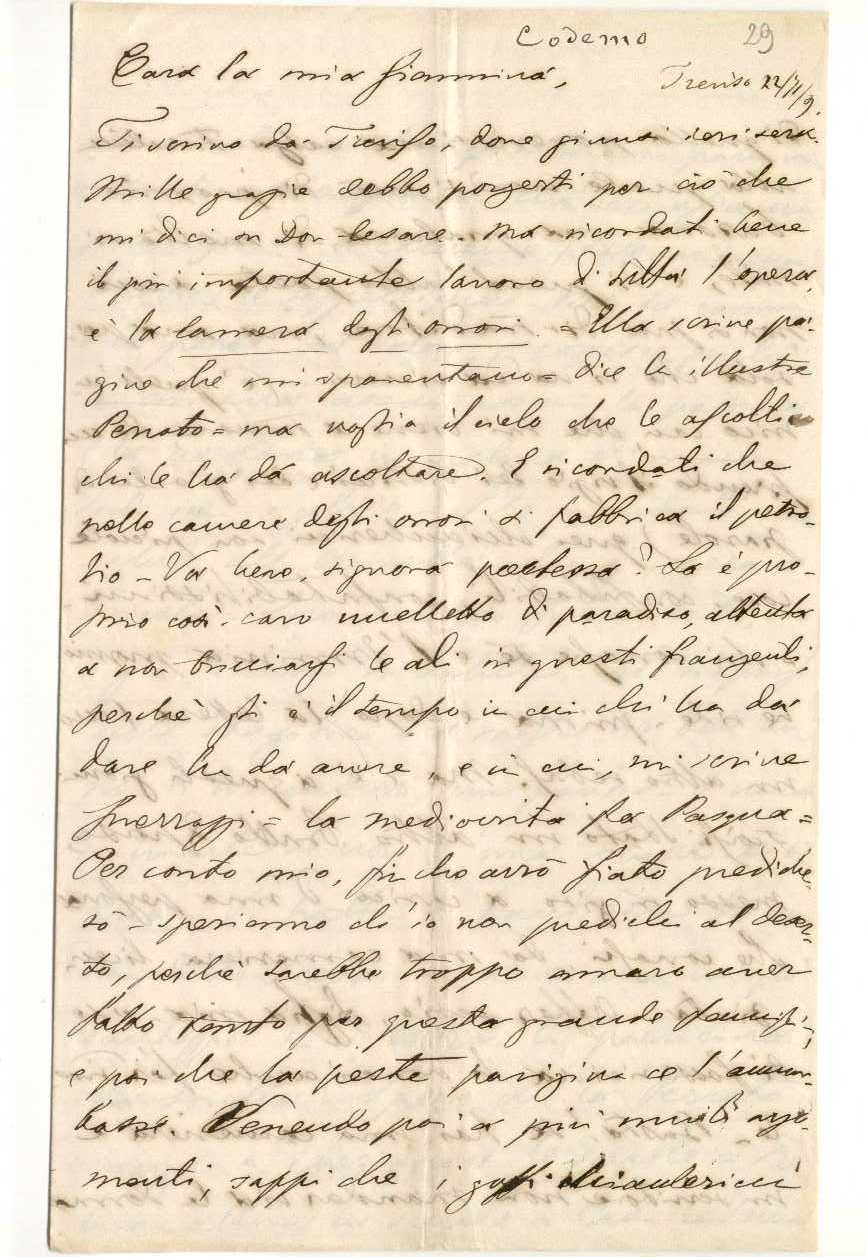 Codemo 29
Cara la mia Giannina,
Treviso 22/71/9.
Ti scrivo da Treviso, dove giunsi ieri sera.
Mille grazie debbo porgerti per ciò che
mi dici su Don Cesare. Ma ricordati bene
il più importante lavoro di tutta l'opera,
è la camera degli orrori. = Ella scrive pa-
gine che mi spaventano = dice la illustre
= ma voglia il cielo che le ascolti
chi le ha da ascoltare. E ricordati che
nelle camere degli orrori si fabbrica il petro-
lio - Va bene, signora poetessa? La è pro-
prio così. caro uccelletto di paradiso, attenta
a non bruciarsi le ali in questi frangenti,
perchè gli è il tempo in cui chi ha da
dare ha da avere, e in cui, mi scrive
Guerrazzi = la mediocrità fa Pasqua =
Per conto mio, finchè avrò fiato prediche-
rò - speriamo ch'io non predichi al deser-
to, perchè sarebbe troppo amaro aver
fatto tanto per questa grande famigli-,
e poi che la peste parigina ce l'ammor-
basse. Venendo poi a più miti argo-
menti, sappi che i